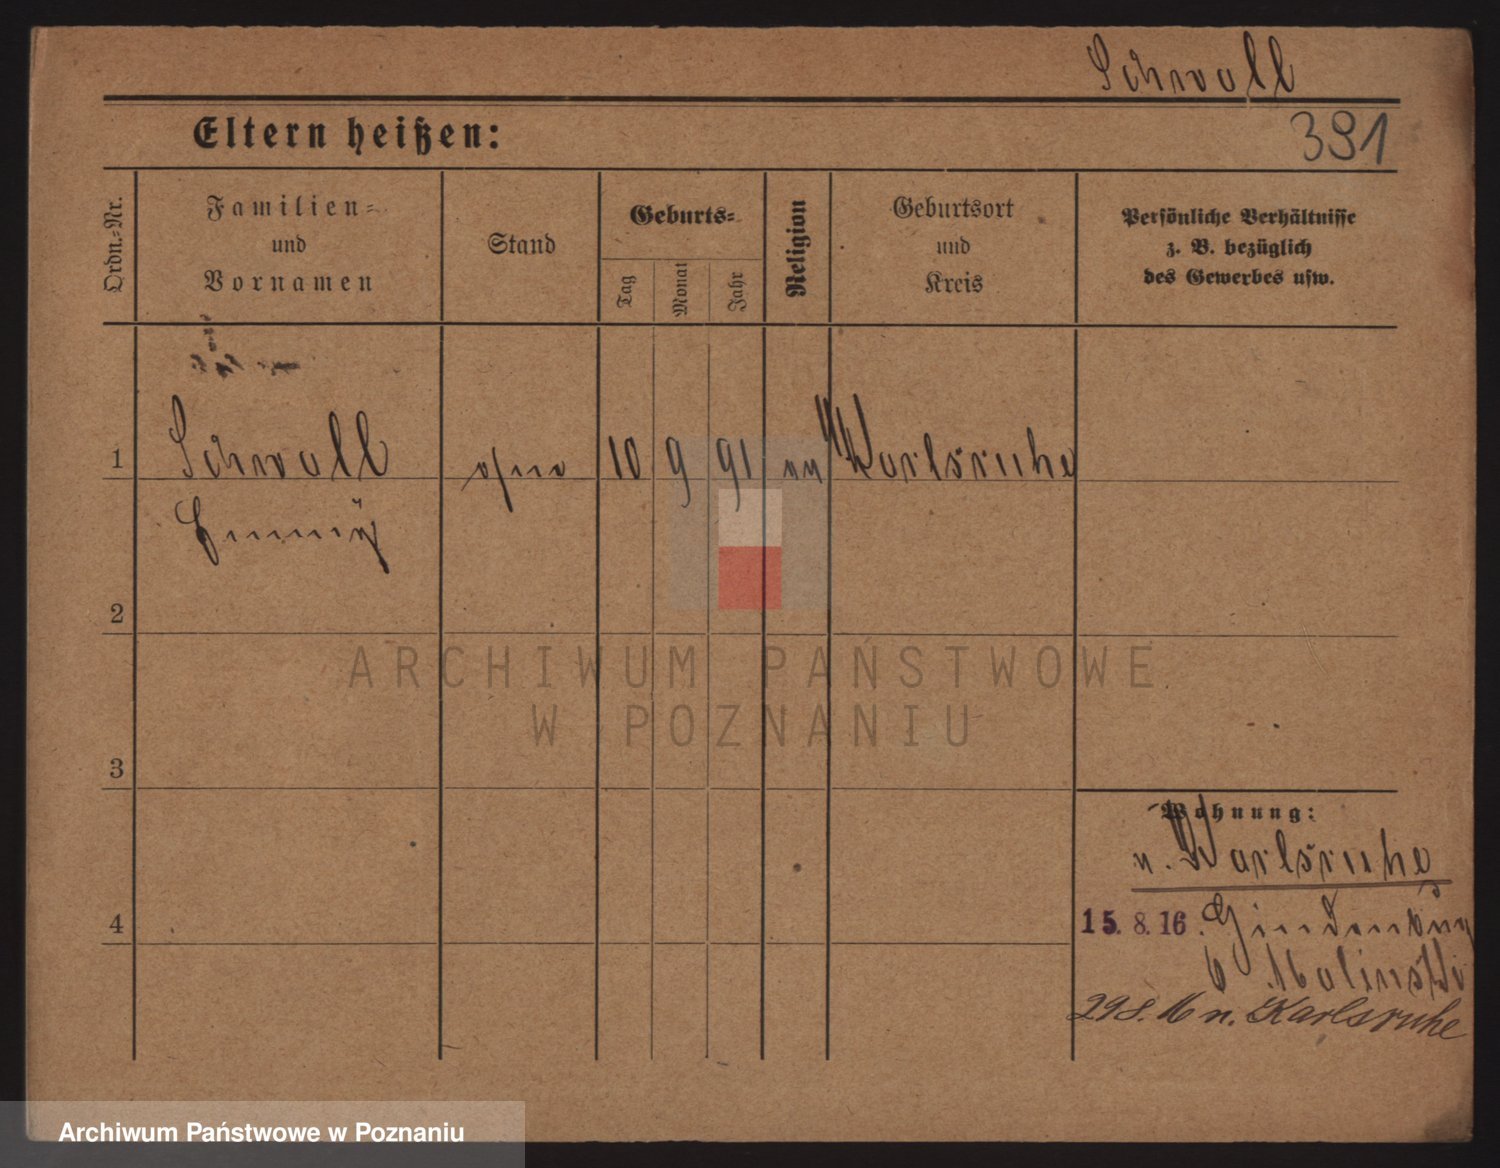 Schwall
391
Eltern heißen:
Ordn.-Nr.
Familien-
und
Vornamen
Stand
Geburts-
Tag
Monat
Jahr
Religion
Geburtsort
und
Kreis
Persönliche Verhältnisse
z. B. bezüglich
des Gewerbes usw.
1 Schwall ohne 10 9 91 Karlsruhe
Emmy
2
ARCHIWUM PAŃSTWOWE
W POZNANIU
3
Wohnung:
n. Karlsruhe
4
15. 8. 16.
b
29 8. 16 n. Karlsruhe
Archiwum Państwowe w Poznaniu